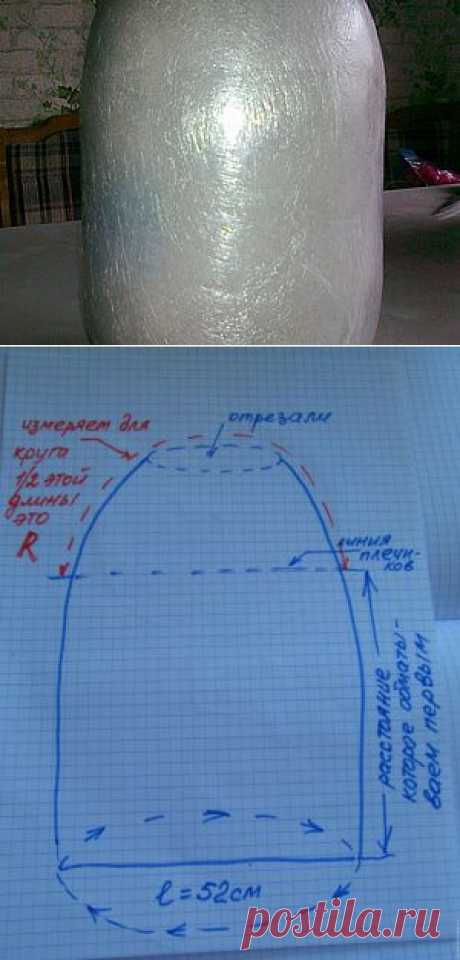 отрезали
измеряем для
круга
1/2 этой
длины
это
R
линия
плечи-
ков
расстояние
которое обматы-
ваем первым
l = 52см
postila.ru